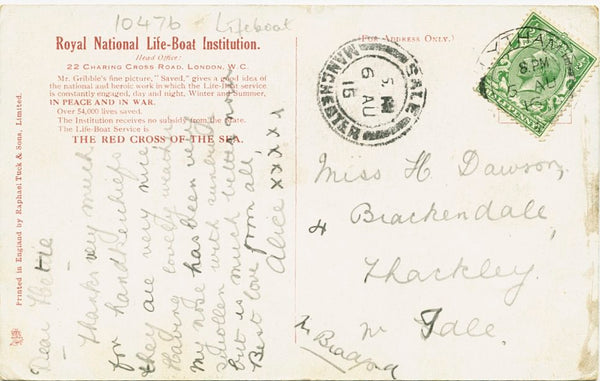 10476 Lifeboat
Royal National Life-Boat Institution.
Head Office:
22 CHARING CROSS ROAD, LONDON, W.C.
Mr. Gribble's fine picture, "Saved," gives a good idea of
the national and heroic work in which the Life-Boat service
is constantly engaged, day and night, Winter and Summer,
IN PEACE AND IN WAR.
Over 54,000 lives saved.
The Institution receives no subsidy from the State.
The Life-Boat Service is
THE RED CROSS OF THE SEA.
Printed in England by Raphael Tuck & Sons, Limited.
Dear Hettie
Thanks very much
for handkerchiefs
they are very nice
Having lovely weather
My nose has been very
swollen with sunburn
but is much better now
Best love from all
Alice xxxxx
(FOR ADDRESS ONLY.)
SALE
6 AU
15
MANCHESTER
LYTHAM
8. PM
5 AU
Miss H Dawson,
4 Brackendale,
Thackley,
Nr Idle.
Nr Bradford